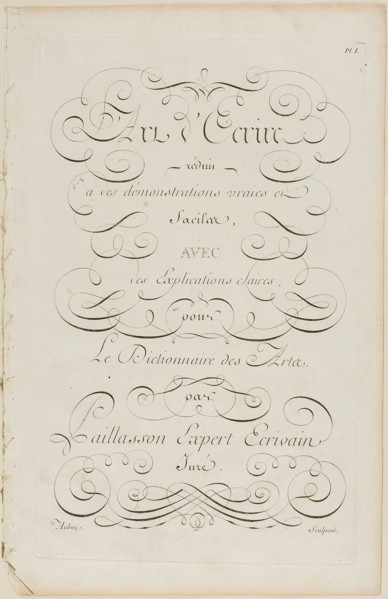 Pl. I.
L'Art d'Ecrire
réduit
a des démonstrations vraies et
faciles,
AVEC
des Explications claires,
pour
Le Dictionnaire des Arts.
par
Paillasson Expert Ecrivain
Juré.
Aubin
Sculpsit.